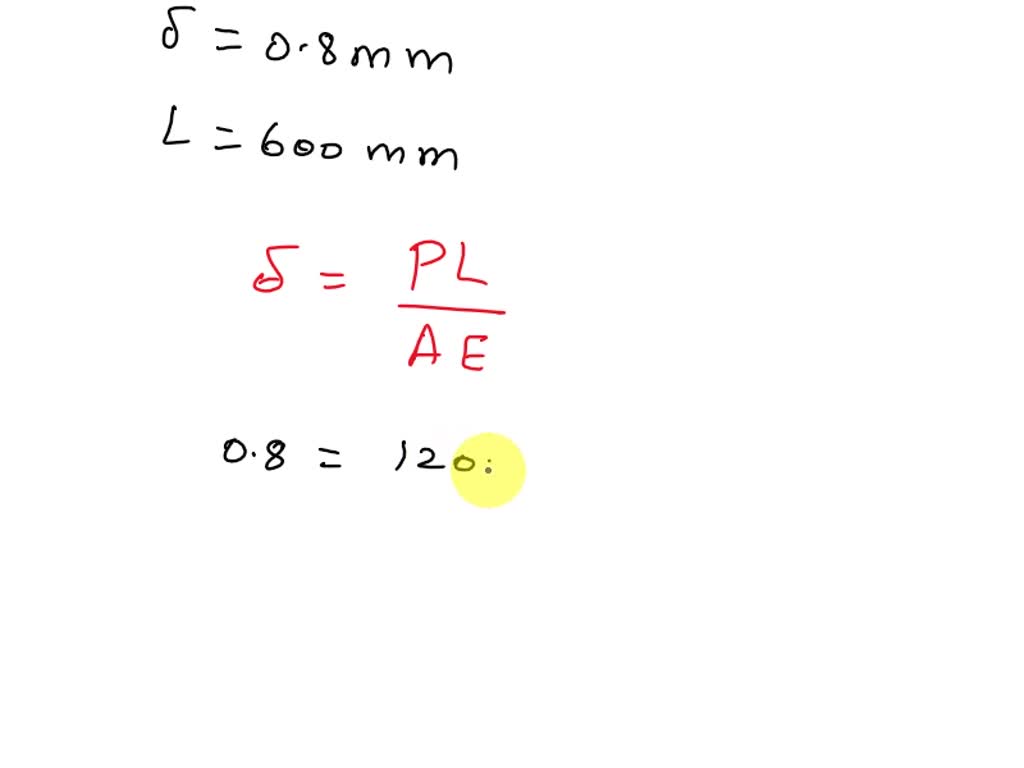 δ = 0.8 mm
L = 600 mm
δ = PL / AE
0.8 = 120